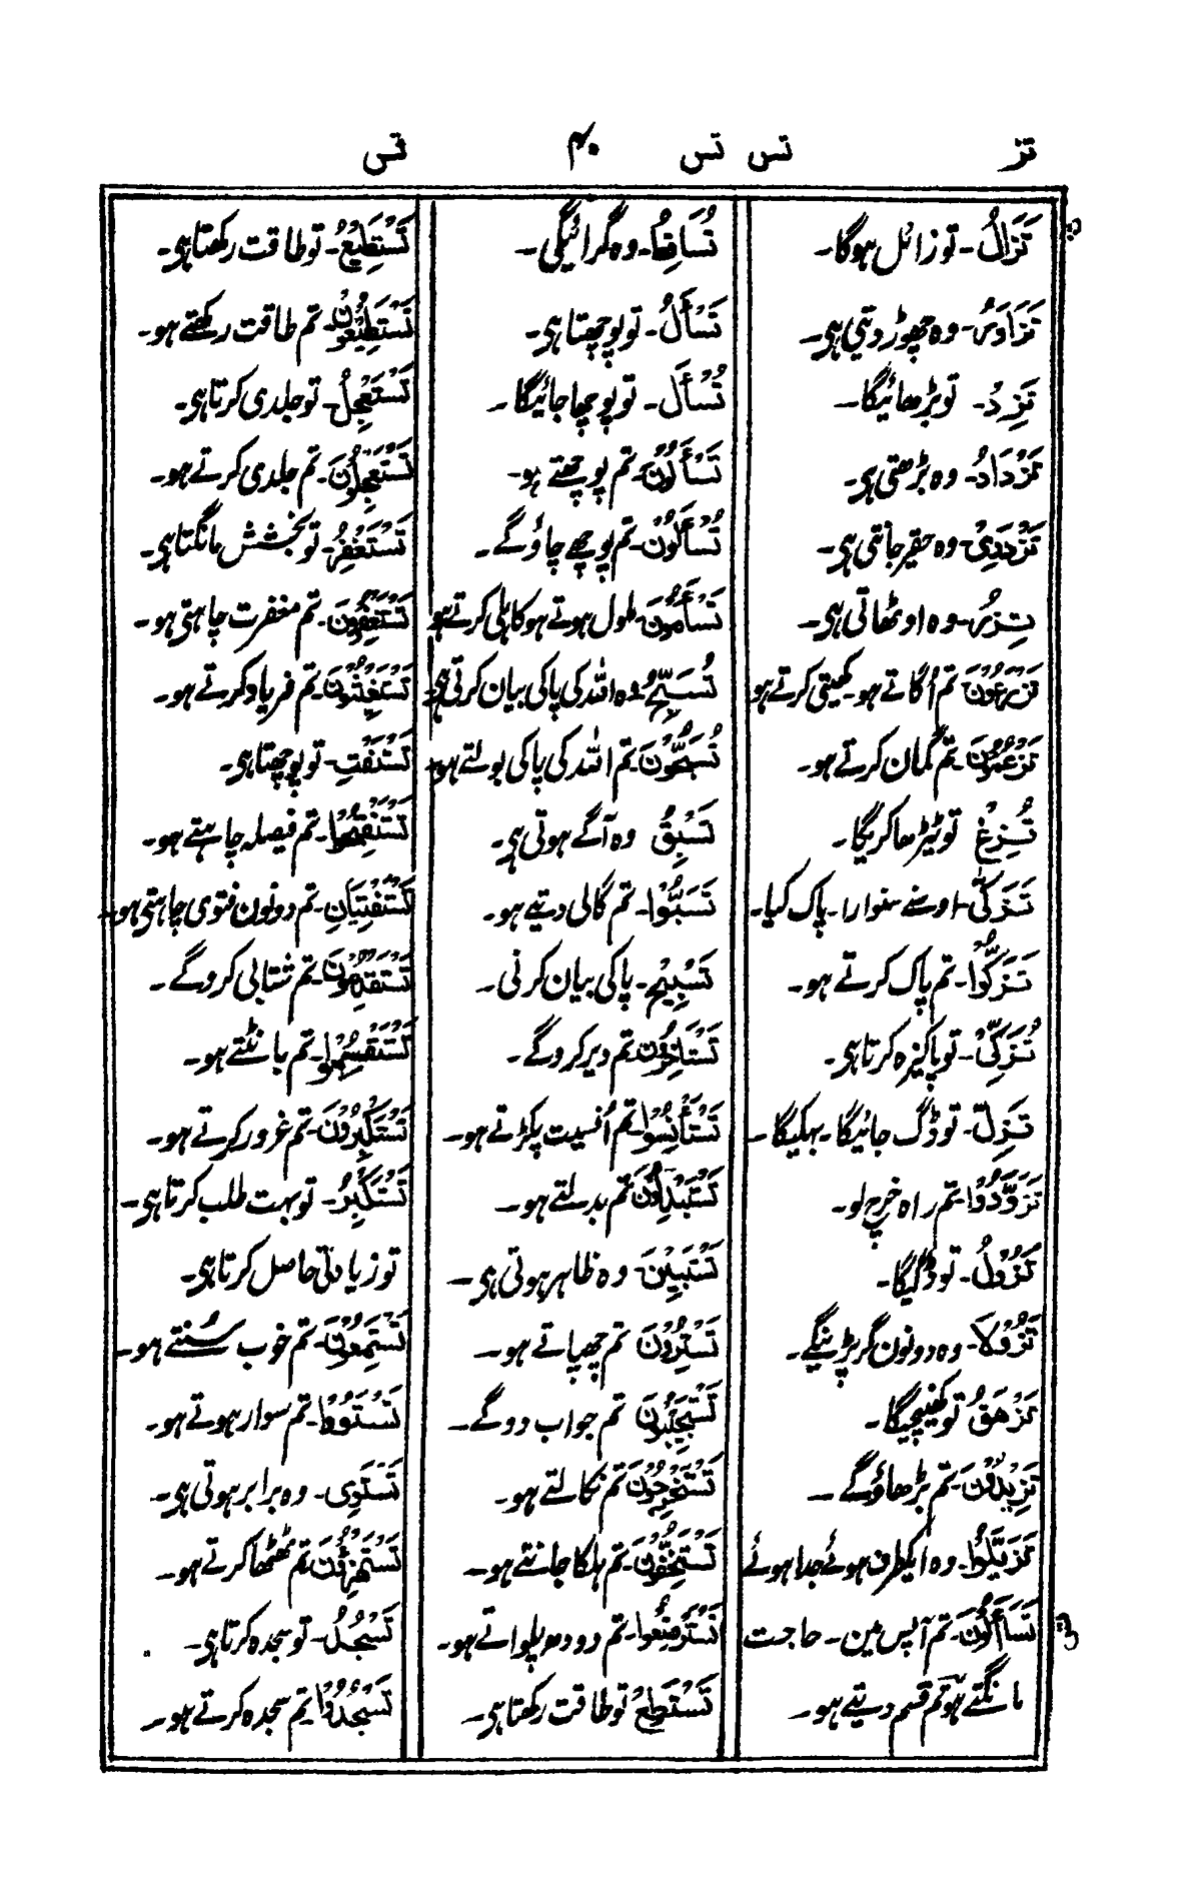 تز تس تس ۴۰ تس
تَزَالُ۔ تو زائل ہوگا۔
تَزَاوَرُ۔ وہ چھوڑ دیتی ہی۔
تَزِدُ۔ تو بڑھائیگا۔
تَزْدَادُ۔ وہ بڑھتی ہی۔
تَزْدَرِیْ۔ وہ حقیر جانتی ہی۔
تَزِرُ۔ وہ اوٹھاتی ہی۔
تَزْرَعُوْنَ تم اُگاتے ہو۔ کھیتی کرتے ہو
تَزْعُمُوْنَ۔ تم گمان کرتے ہو۔
تُزِغْ تو ٹیڑھا کریگا۔
تَزَکّٰی۔ اوسنے سنوارا۔ پاک کیا۔
تُزَکُّوْا۔ تم پاک کرتے ہو۔
تُزَکِّیْ۔ تو پاکیزہ کرتا ہی۔
تَزِلَّ۔ تو ڈگ جائیگا۔ بہکیگا۔
تَزَوَّدُوْا۔ تم راہ خرچ لو۔
تَزُوْلُ۔ تو ڈگیگا۔
تَزُوْلَا۔ وہ دونون گر پڑینگے۔
تَزْهَقُ تو کھنیچیگا۔
تَزِیْدُوْنَ۔ تم بڑھاؤگے۔
تَزَیَّلُوْا۔ وہ ایکطرف ہوئے جدا ہوئے
تس
تَسَآءَلُوْنَ۔ تم آپس مین۔ حاجت
مانگتے ہو تم قسم دیتے ہو۔
تُسَاقِطُ۔ وہ گرائیگی۔
تَسْأَلُ۔ تو پوچھتا ہی۔
تُسْأَلُ۔ تو پوچھا جائیگا۔
تَسْأَلُوْنَ۔ تم پوچھتے ہو۔
تُسْأَلُوْنَ۔ تم پوچھے جاؤگے۔
تَسْأَمُوْنَ۔ ملول ہوتے ہو کاہلی کرتے ہو
تُسَبِّحُ۔ وہ اللہ کی پاکی بیان کرتی ہی۔
تُسَبِّحُوْنَ۔ تم اللہ کی پاکی بولتے ہو۔
تَسْبِقُ وہ آگے ہوتی ہی۔
تَسُبُّوْا۔ تم گالی دیتے ہو۔
تَسْبِیْحَ۔ پاکی بیان کرنی۔
تَسْتَأْخِرُوْنَ تم دیر کروگے۔
تَسْتَأْنِسُوْا۔ تم اُنسیت پکڑتے ہو۔
تَسْتَبْدِلُوْنَ تم بدلتے ہو۔
تَسْتَبِیْنَ۔ وہ ظاہر ہوتی ہی۔
تَسْتَتِرُوْنَ تم چھپاتے ہو۔
تَسْتَجِیْبُوْنَ تم جواب دوگے۔
تَسْتَخْرِجُوْنَ تم نکالتے ہو۔
تَسْتَخِفُّوْنَ۔ تم ہلکا جانتے ہو۔
تَسْتَرْضِعُوْا۔ تم دودھ پلواتے ہو۔
تَسْتَطِعْ تو طاقت رکھتا ہی۔
تَسْتَطِیْعُ۔ تو طاقت رکھتا ہی۔
تَسْتَطِیْعُوْنَ۔ تم طاقت رکھتے ہو۔
تَسْتَعْجِلُ۔ تو جلدی کرتا ہی۔
تَسْتَعْجِلُوْنَ۔ تم جلدی کرتے ہو۔
تَسْتَغْفِرُ۔ تو بخشش مانگتا ہی۔
تَسْتَغْفِرُوْنَ۔ تم مغفرت چاہتی ہو۔
تَسْتَغِیْثُوْنَ۔ تم فریاد کرتے ہو۔
تَسْتَفْتِ۔ تو پوچھتا ہی۔
تَسْتَفْتِحُوْا۔ تم فیصلہ چاہتے ہو۔
تَسْتَفْتِیَانِ۔ تم دونون فتوی چاہتی ہو۔
تَسْتَقْدِمُوْنَ۔ تم شتابی کروگے۔
تَسْتَقْسِمُوْا۔ تم بانٹتے ہو۔
تَسْتَکْبِرُوْنَ۔ تم غرور کرتے ہو۔
تَسْتَکْثِرُ۔ تو بہت طلب کرتا ہی۔
تو زیادتی حاصل کرتا ہی۔
تَسْتَمِعُوْنَ۔ تم خوب سُنتے ہو۔
تَسْتَوٗا۔ تم سوار ہوتے ہو۔
تَسْتَوِی۔ وہ برابر ہوتی ہی۔
تَسْتَهْزِءُوْنَ۔ تم ٹھٹھا کرتے ہو۔
تَسْجُدُ۔ تو سجدہ کرتا ہی۔
تَسْجُدُوْا۔ تم سجدہ کرتے ہو۔